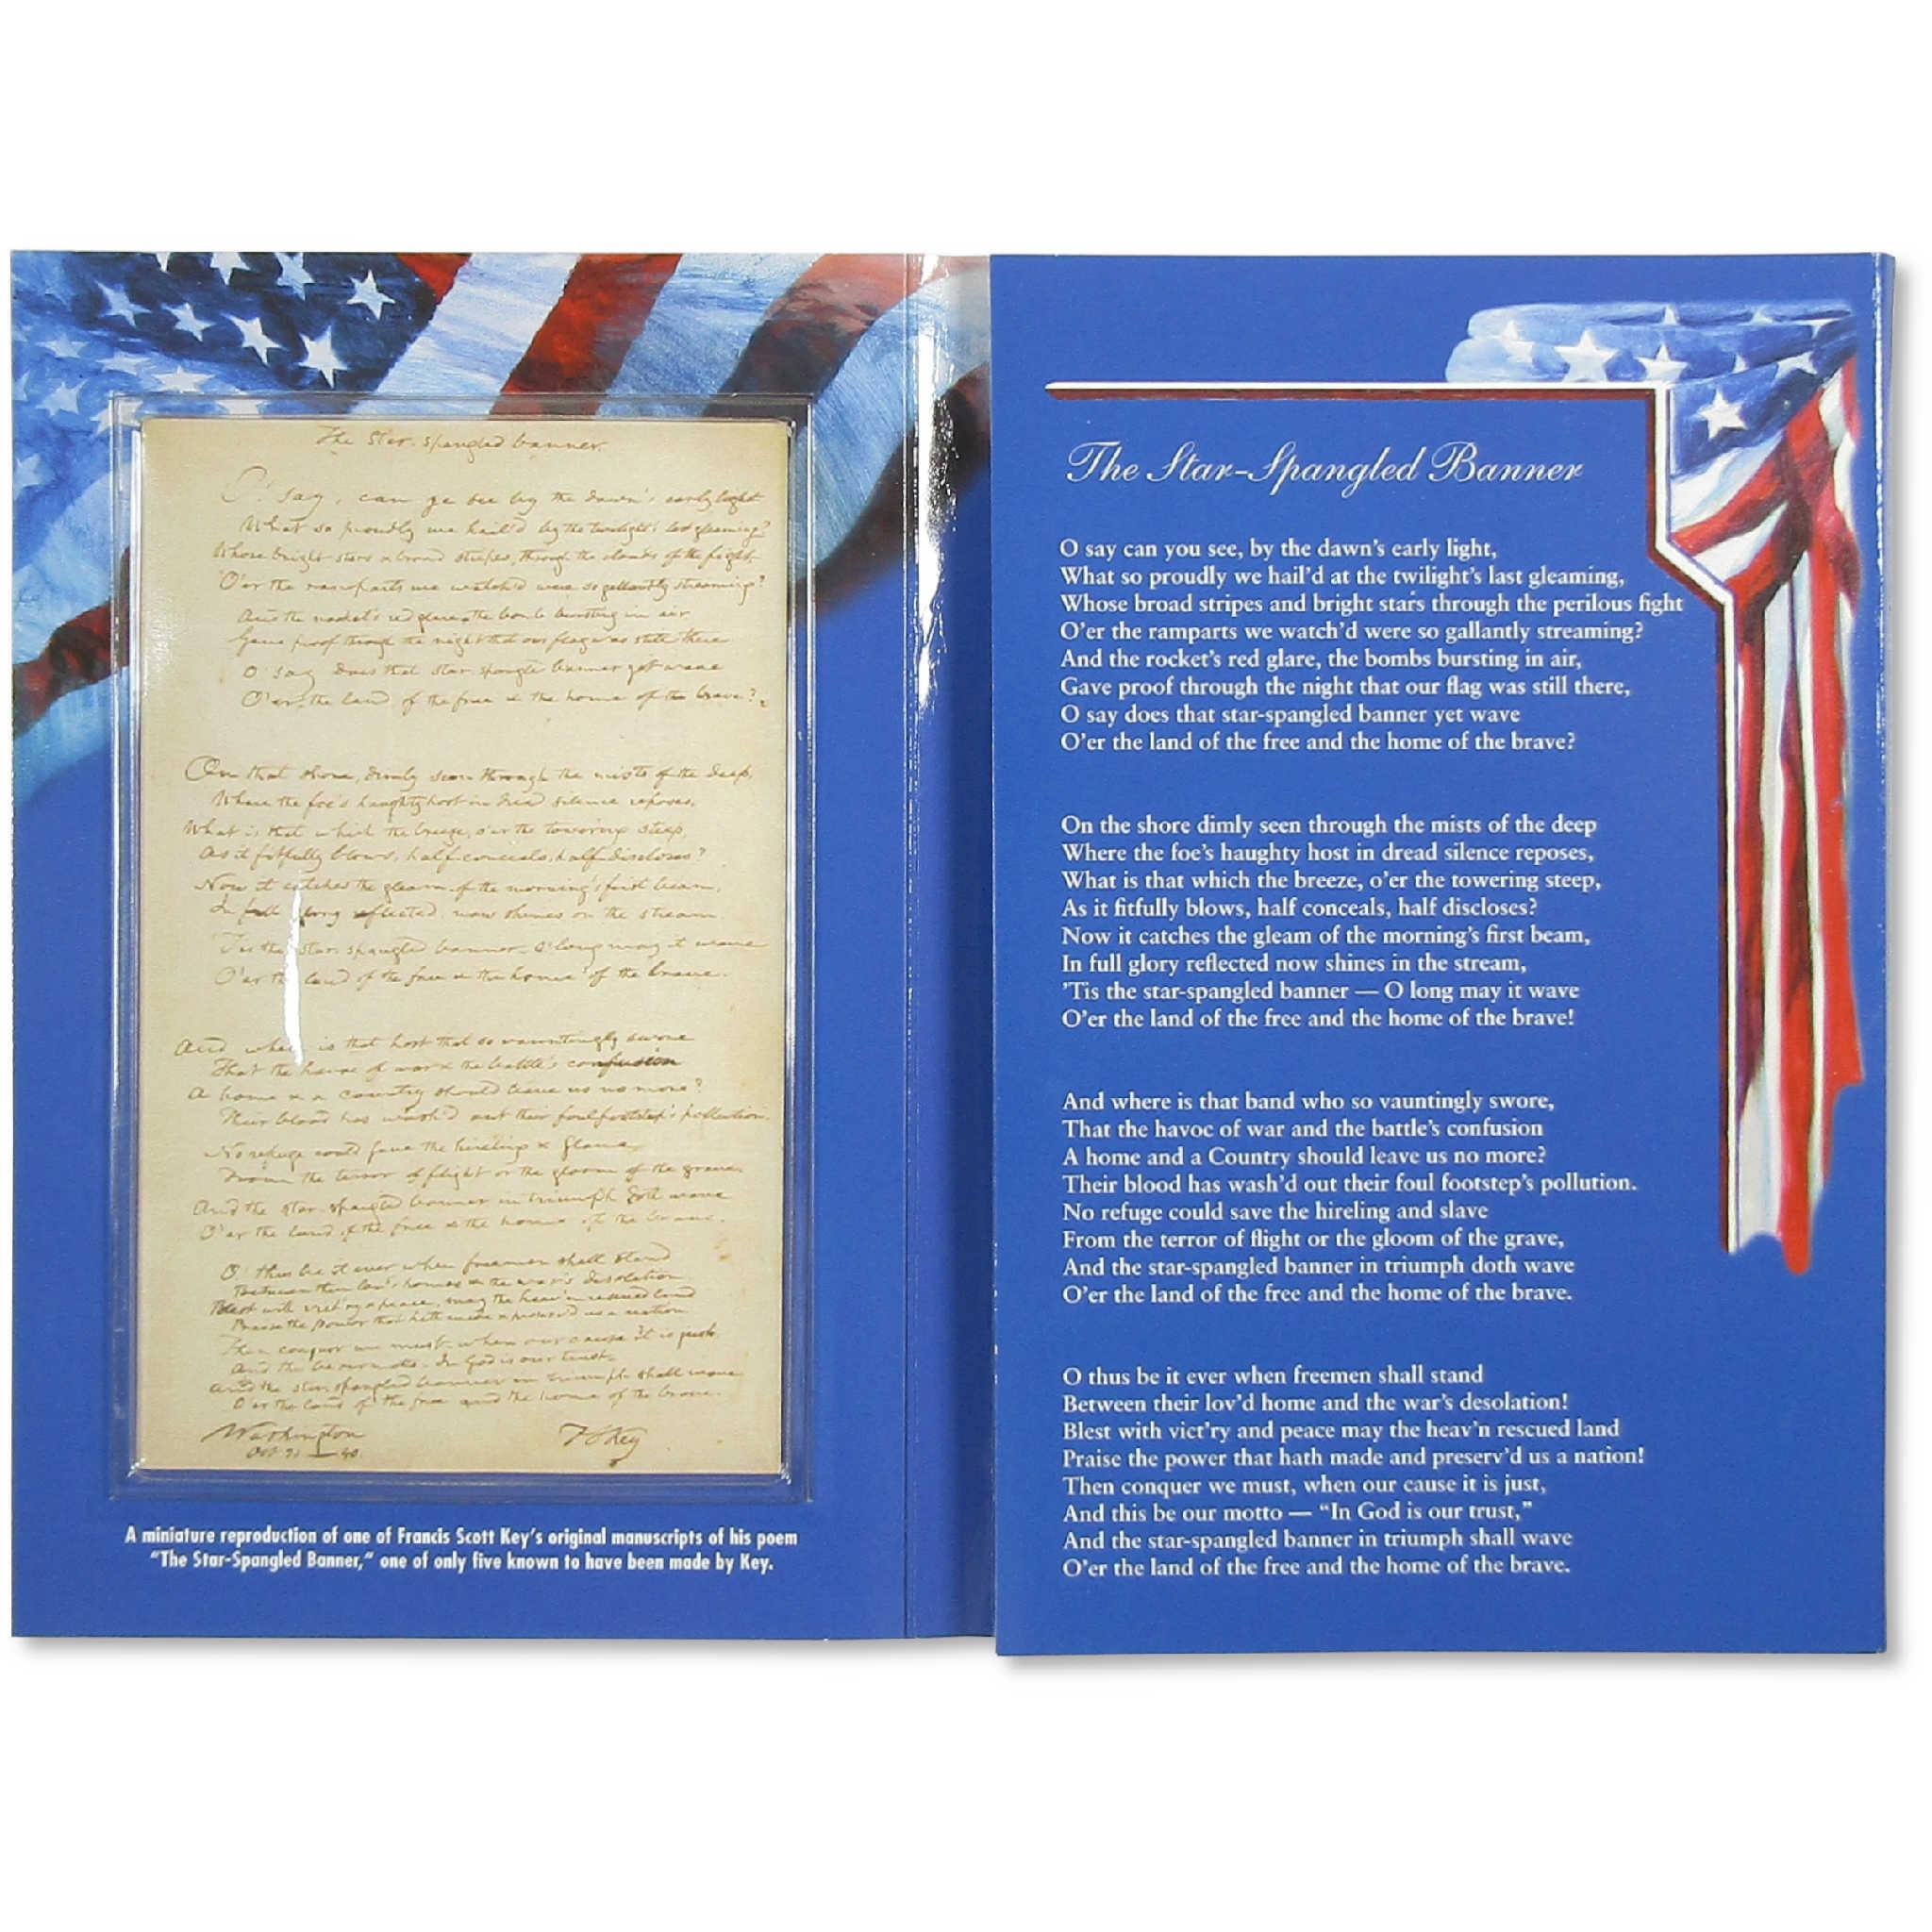 The Star-spangled banner.
O! say, can ye see by the dawn's early light
What so proudly we hail'd by the twilight's last gleaming?
Whose bright stars & broad stripes, through the clouds of the fight,
O'er the ramparts we watch'd were so gallantly streaming?
And the rocket's red glare the bomb bursting in air
Gave proof through the night that our flag was still there
O say does that star-spangled banner yet wave
O'er the land of the free & the home of the brave?
On that shore, dimly seen through the mists of the deep,
Where the foe's haughty host in dread silence reposes,
What is that which the breeze, o'er the towering steep,
As it fitfully blows, half conceals, half discloses?
Now it catches the gleam of the morning's first beam,
In full glory reflected now shines on the stream
'Tis the star-spangled banner - O! long may it wave
O'er the land of the free & the home of the brave.
And where is that host that so vauntingly swore
That the havoc of war & the battle's confusion
A home & a country should leave us no more?
Their blood has wash'd out their foul footstep's pollution.
No refuge could save the hireling & slave
From the terror of flight or the gloom of the grave
And the star-spangled banner in triumph doth wave
O'er the land of the free & the home of the brave.
O! thus be it ever when freemen shall stand
Between their lov'd homes & the war's desolation
Blest with vict'ry & peace, may the heav'n rescued land
Praise the power that hath made & preserv'd us a nation
Then conquer we must, when our cause it is just,
And this be our motto - In God is our trust
And the star-spangled banner in triumph shall wave
O'er the land of the free and the home of the brave.
Washington
Oct 21 - 40.
F S Key
A miniature reproduction of one of Francis Scott Key's original manuscripts of his poem
"The Star-Spangled Banner," one of only five known to have been made by Key.
The Star-Spangled Banner
O say can you see, by the dawn's early light,
What so proudly we hail'd at the twilight's last gleaming,
Whose broad stripes and bright stars through the perilous fight
O'er the ramparts we watch'd were so gallantly streaming?
And the rocket's red glare, the bombs bursting in air,
Gave proof through the night that our flag was still there,
O say does that star-spangled banner yet wave
O'er the land of the free and the home of the brave?
On the shore dimly seen through the mists of the deep
Where the foe's haughty host in dread silence reposes,
What is that which the breeze, o'er the towering steep,
As it fitfully blows, half conceals, half discloses?
Now it catches the gleam of the morning's first beam,
In full glory reflected now shines in the stream,
'Tis the star-spangled banner — O long may it wave
O'er the land of the free and the home of the brave!
And where is that band who so vauntingly swore,
That the havoc of war and the battle's confusion
A home and a Country should leave us no more?
Their blood has wash'd out their foul footstep's pollution.
No refuge could save the hireling and slave
From the terror of flight or the gloom of the grave,
And the star-spangled banner in triumph doth wave
O'er the land of the free and the home of the brave.
O thus be it ever when freemen shall stand
Between their lov'd home and the war's desolation!
Blest with vict'ry and peace may the heav'n rescued land
Praise the power that hath made and preserv'd us a nation!
Then conquer we must, when our cause it is just,
And this be our motto — "In God is our trust,"
And the star-spangled banner in triumph shall wave
O'er the land of the free and the home of the brave.